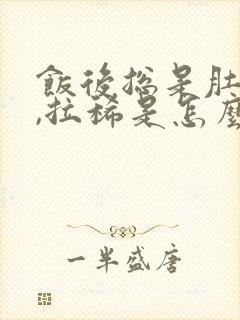 飯後總是肚
,拉稀是怎麼
一半盛唐